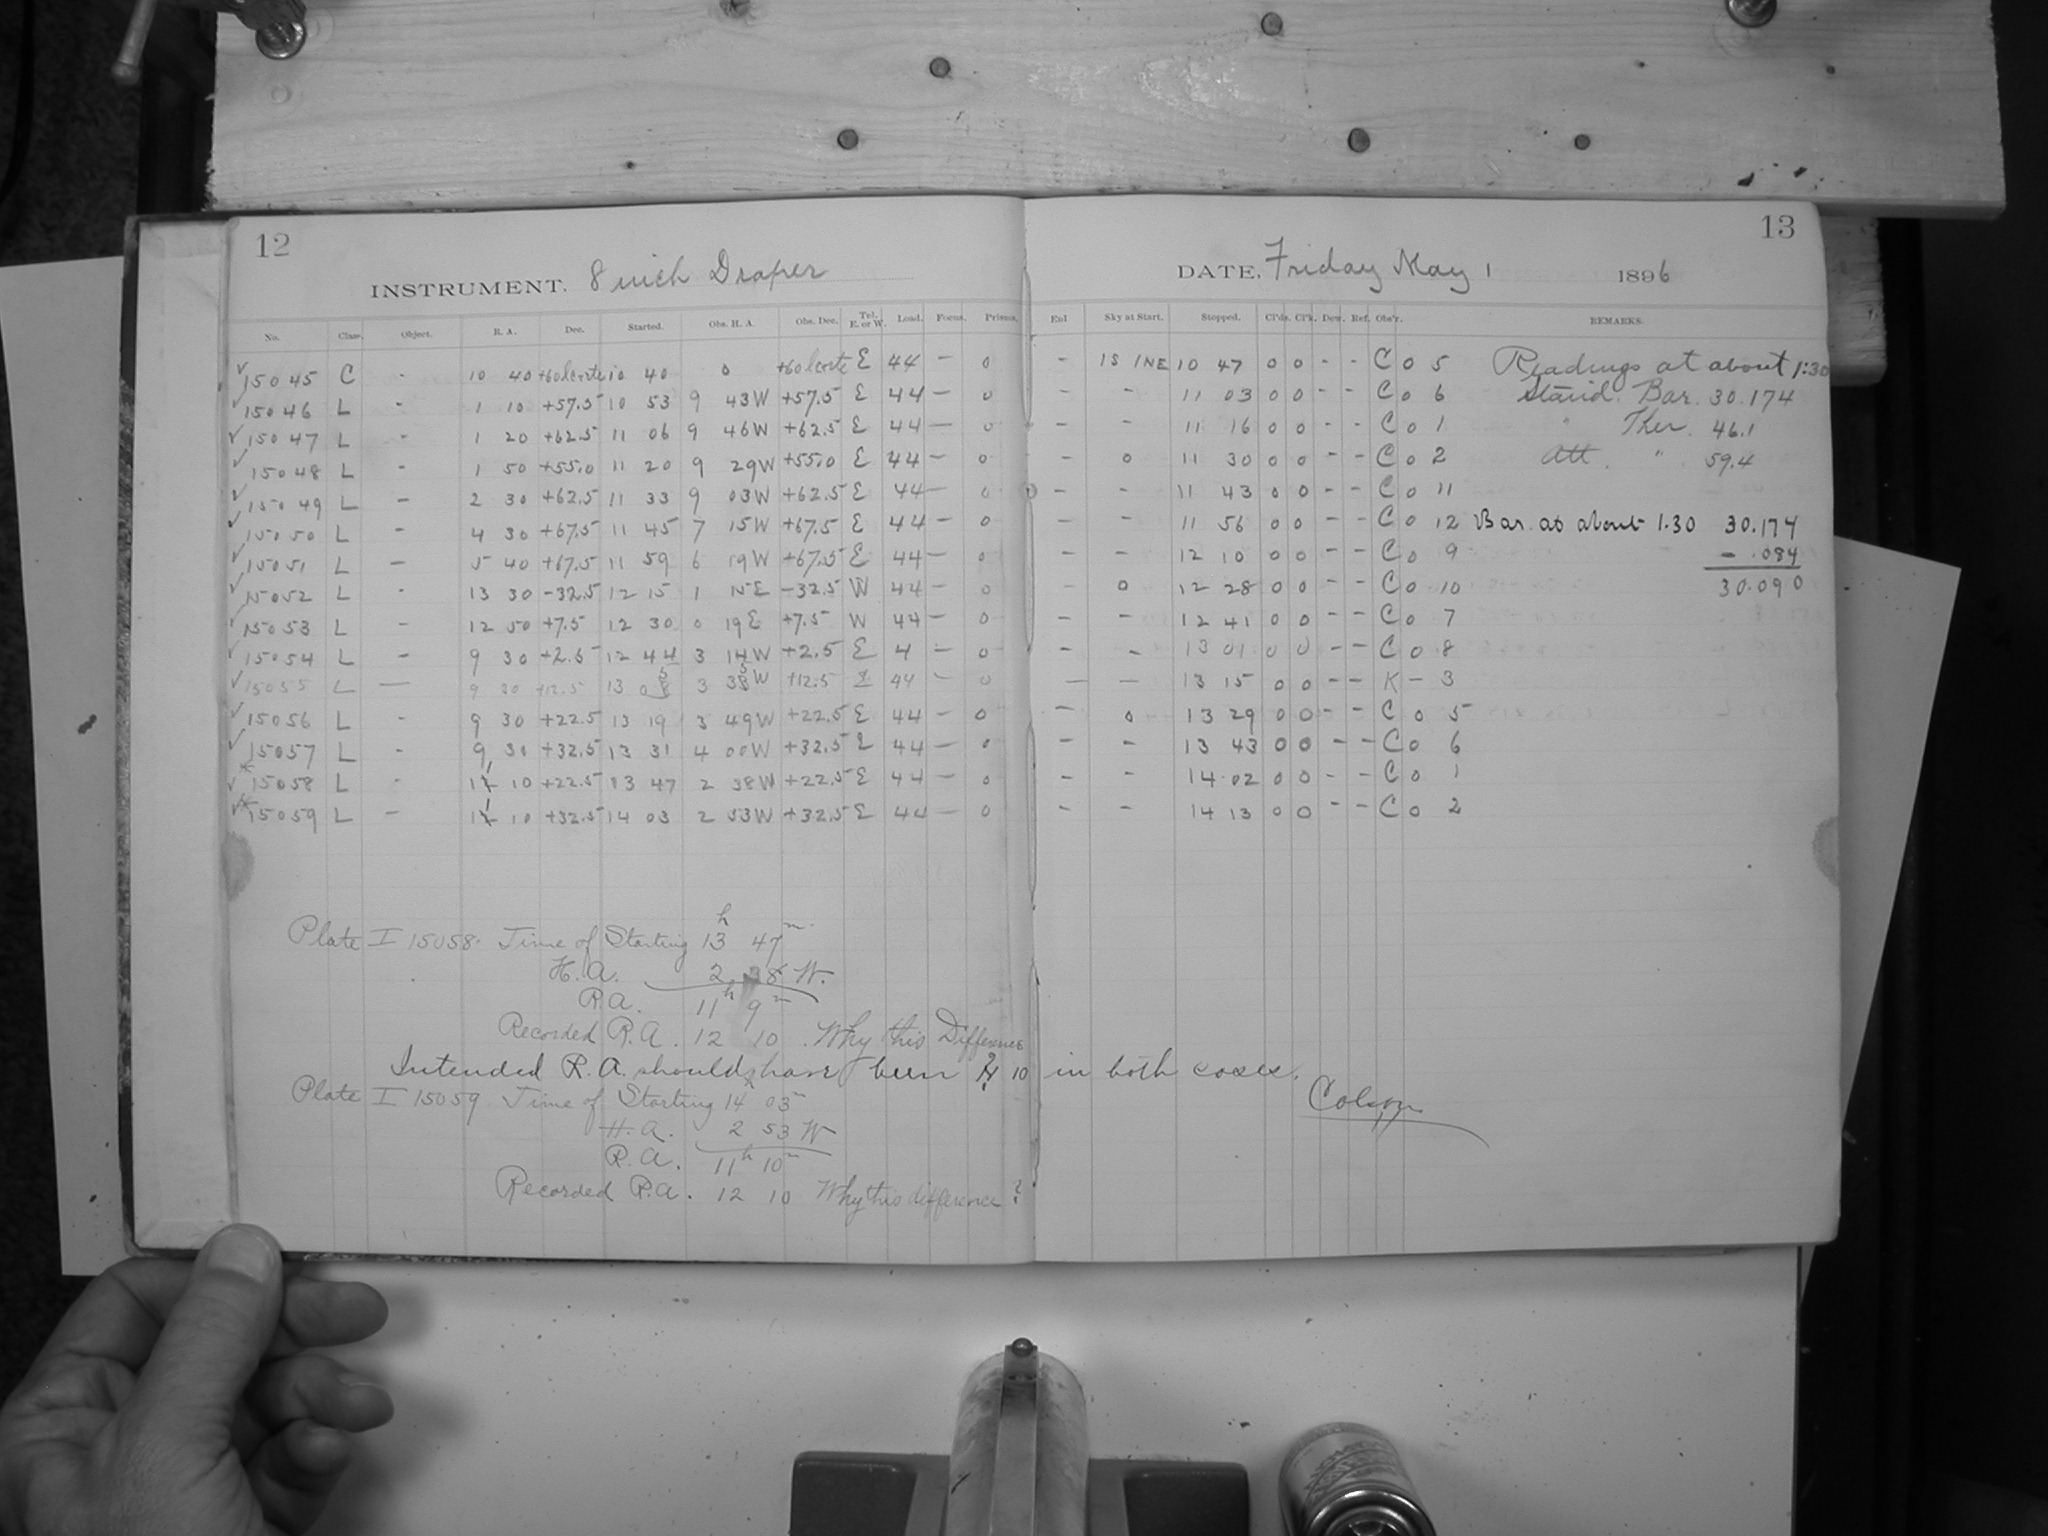 12
13
INSTRUMENT. 8 inch Draper
DATE, Friday May 1 1896
No. Class. Object. R. A. Dec. Started. Obs. H. A. Obs. Dec. Tel. E. or W. Load. Focus. Prisms. Enl Sky at Start. Stopped. Cl'ds. Cl'k. Dew. Ref. Obs'r. REMARKS.
✓ 15045 C - 10 40 +60 10 40 0 +60 E 44 - 0 - 1S 1NE 10 47 0 0 - - C 0 5 Readings at about 1:30
✓ 15046 L - 1 10 +57.5 10 53 9 43W +57.5 E 44 - 0 - - 11 03 0 0 - - C 0 6 Stand. Bar. 30.174
✓ 15047 L - 1 20 +62.5 11 06 9 46W +62.5 E 44 - 0 - - 11 16 0 0 - - C 0 1 " Ther. 46.1
✓ 15048 L - 1 50 +55.0 11 20 9 29W +55.0 E 44 - 0 - 0 11 30 0 0 - - C 0 2 Att. " 59.4
✓ 15049 L - 2 30 +62.5 11 33 9 03W +62.5 E 44 - 0 - - 11 43 0 0 - - C 0 11
✓ 15050 L - 4 30 +67.5 11 45 7 15W +67.5 E 44 - 0 - - 11 56 0 0 - - C 0 12 Bar. at about 1.30 30.174
✓ 15051 L - 5 40 +67.5 11 59 6 19W +67.5 E 44 - 0 - - 12 10 0 0 - - C 0 9 - .084
✓ 15052 L - 13 30 -32.5 12 15 1 15E -32.5 W 44 - 0 - 0 12 28 0 0 - - C 0 10 30.090
✓ 15053 L - 12 50 +7.5 12 30 0 19E +7.5 W 44 - 0 - - 12 41 0 0 - - C 0 7
✓ 15054 L - 9 30 +2.5 12 44 3 14W +2.5 E 4 - 0 - - 13 01 0 0 - - C 0 8
✓ 15055 L - 9 30 +12.5 13 05 3 35W +12.5 E 44 - 0 - - 13 15 0 0 - - K - 3
✓ 15056 L - 9 30 +22.5 13 19 3 49W +22.5 E 44 - 0 - 0 13 29 0 0 - - C 0 5
✓ 15057 L - 9 30 +32.5 13 31 4 00W +32.5 E 44 - 0 - - 13 43 0 0 - - C 0 6
✓ * 15058 L - 11 10 +22.5 13 47 2 38W +22.5 E 44 - 0 - - 14 02 0 0 - - C 0 1
✓ * 15059 L - 11 10 +32.5 14 03 2 53W +32.5 E 44 - 0 - - 14 13 0 0 - - C 0 2
Plate I 15058. Time of Starting 13h 47m
H. A. 2 38 W.
R.A. 11h 9m
Recorded R.A. 12 10. Why this Difference
Intended R.A. should have been 10 in both cases.
Plate I 15059 Time of Starting 14h 03m
H. A. 2 53 W
R. A. 11h 10m
Recorded R.A. 12 10 Why this difference?